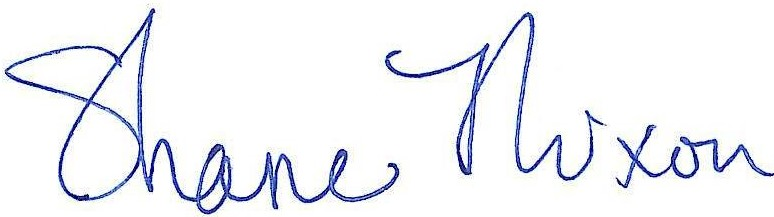 Shane Nixon